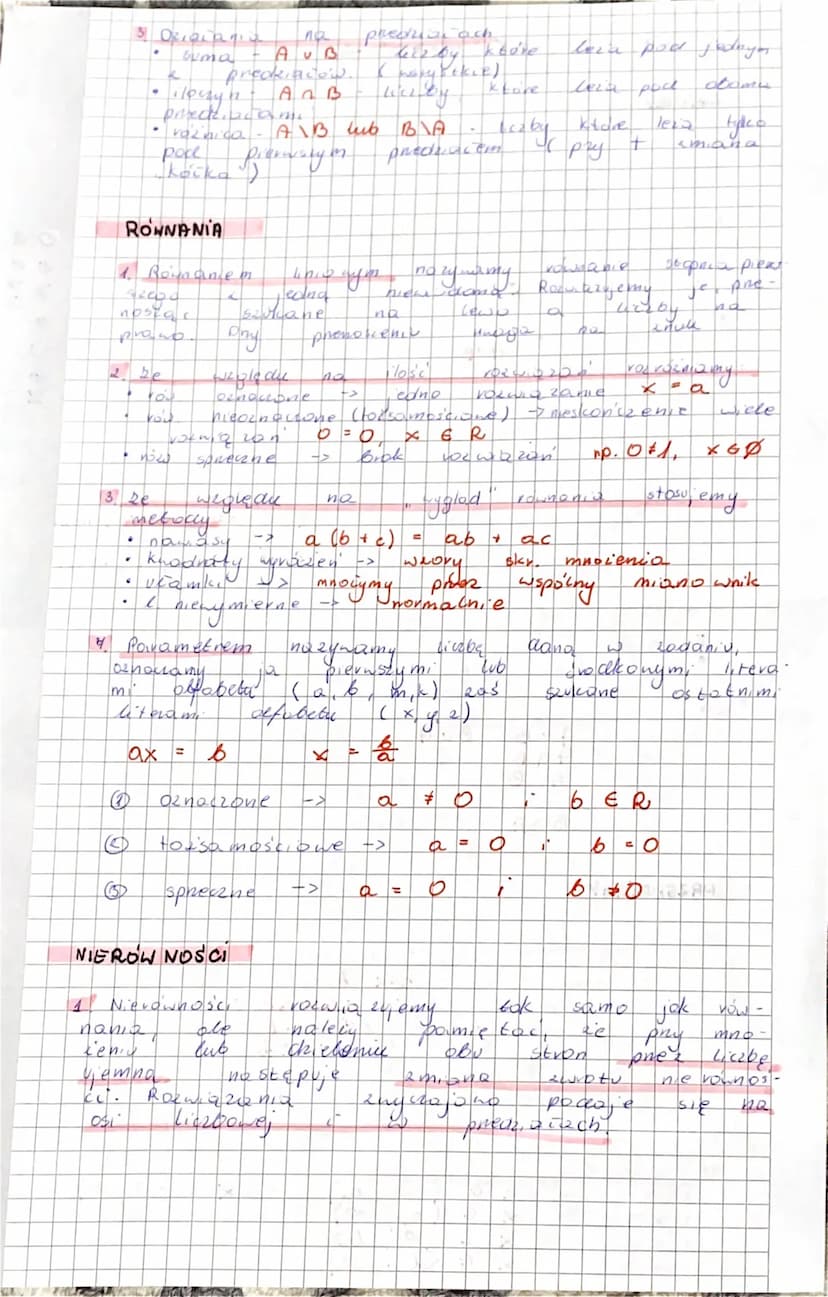 3. Działania na przedziałach
• suma - A ∪ B - liczby które leżą pod jednym
z przedziałów. (wszystkie)
• iloczyn - A ∩ B - liczby które leżą pod oboma
przedziałami
• różnica - A\B lub B\A - liczby które leżą tylko
pod pierwszym przedziałem (przy + zmiana
"kółka")
RÓWNANIA
1. Równaniem liniowym nazywamy równanie stopnia pierw
szego z jedną niewiadomą. Rozwiązujemy je, prze-
nosząc szukane na lewo a liczby na
prawo. Przy przenoszeniu uwaga na znak
2. Ze względu na ilość rozwiązań rozróżniamy
• rów oznaczone -> jedno rozwiązanie x = a
• rów nieoznaczone (tożsamościowe) -> nieskończenie wiele
rozwiązań 0 = 0, x ∈ R
• rów sprzeczne -> brak rozwiązań np. 0≠1, x∈∅
3. Ze względu na "wygląd" równania stosujemy
metody
• nawiasy -> a (b + c) = ab + ac
• kwadraty wyrażeń -> wzory skr. mnożenia
• ułamki -> mnożymy przez wspólny mianownik
• l niewymierne -> normalnie
4. Parametrem nazywamy liczbę daną w zadaniu,
oznaczamy ją pierwszymi lub środkowymi litera-
mi alfabetu (a, b, m, k) zaś szukane ostatnimi
literami alfabetu (x, y, z)
ax = b x = b/a
① oznaczone -> a ≠ 0 i b ∈ R
② tożsamościowe -> a = 0 i b = 0
③ sprzeczne -> a = 0 i b ≠ 0
NIERÓWNOŚCI
1. Nierówności rozwiązujemy tak samo jak rów-
nania, ale należy pamiętać, że przy mno-
żeniu lub dzieleniu obu stron przez liczbę
ujemną następuje zmiana zwrotu nierównoś-
ci. Rozwiązania zwyczajowo podaje się na
osi liczbowej i w przedziałach.